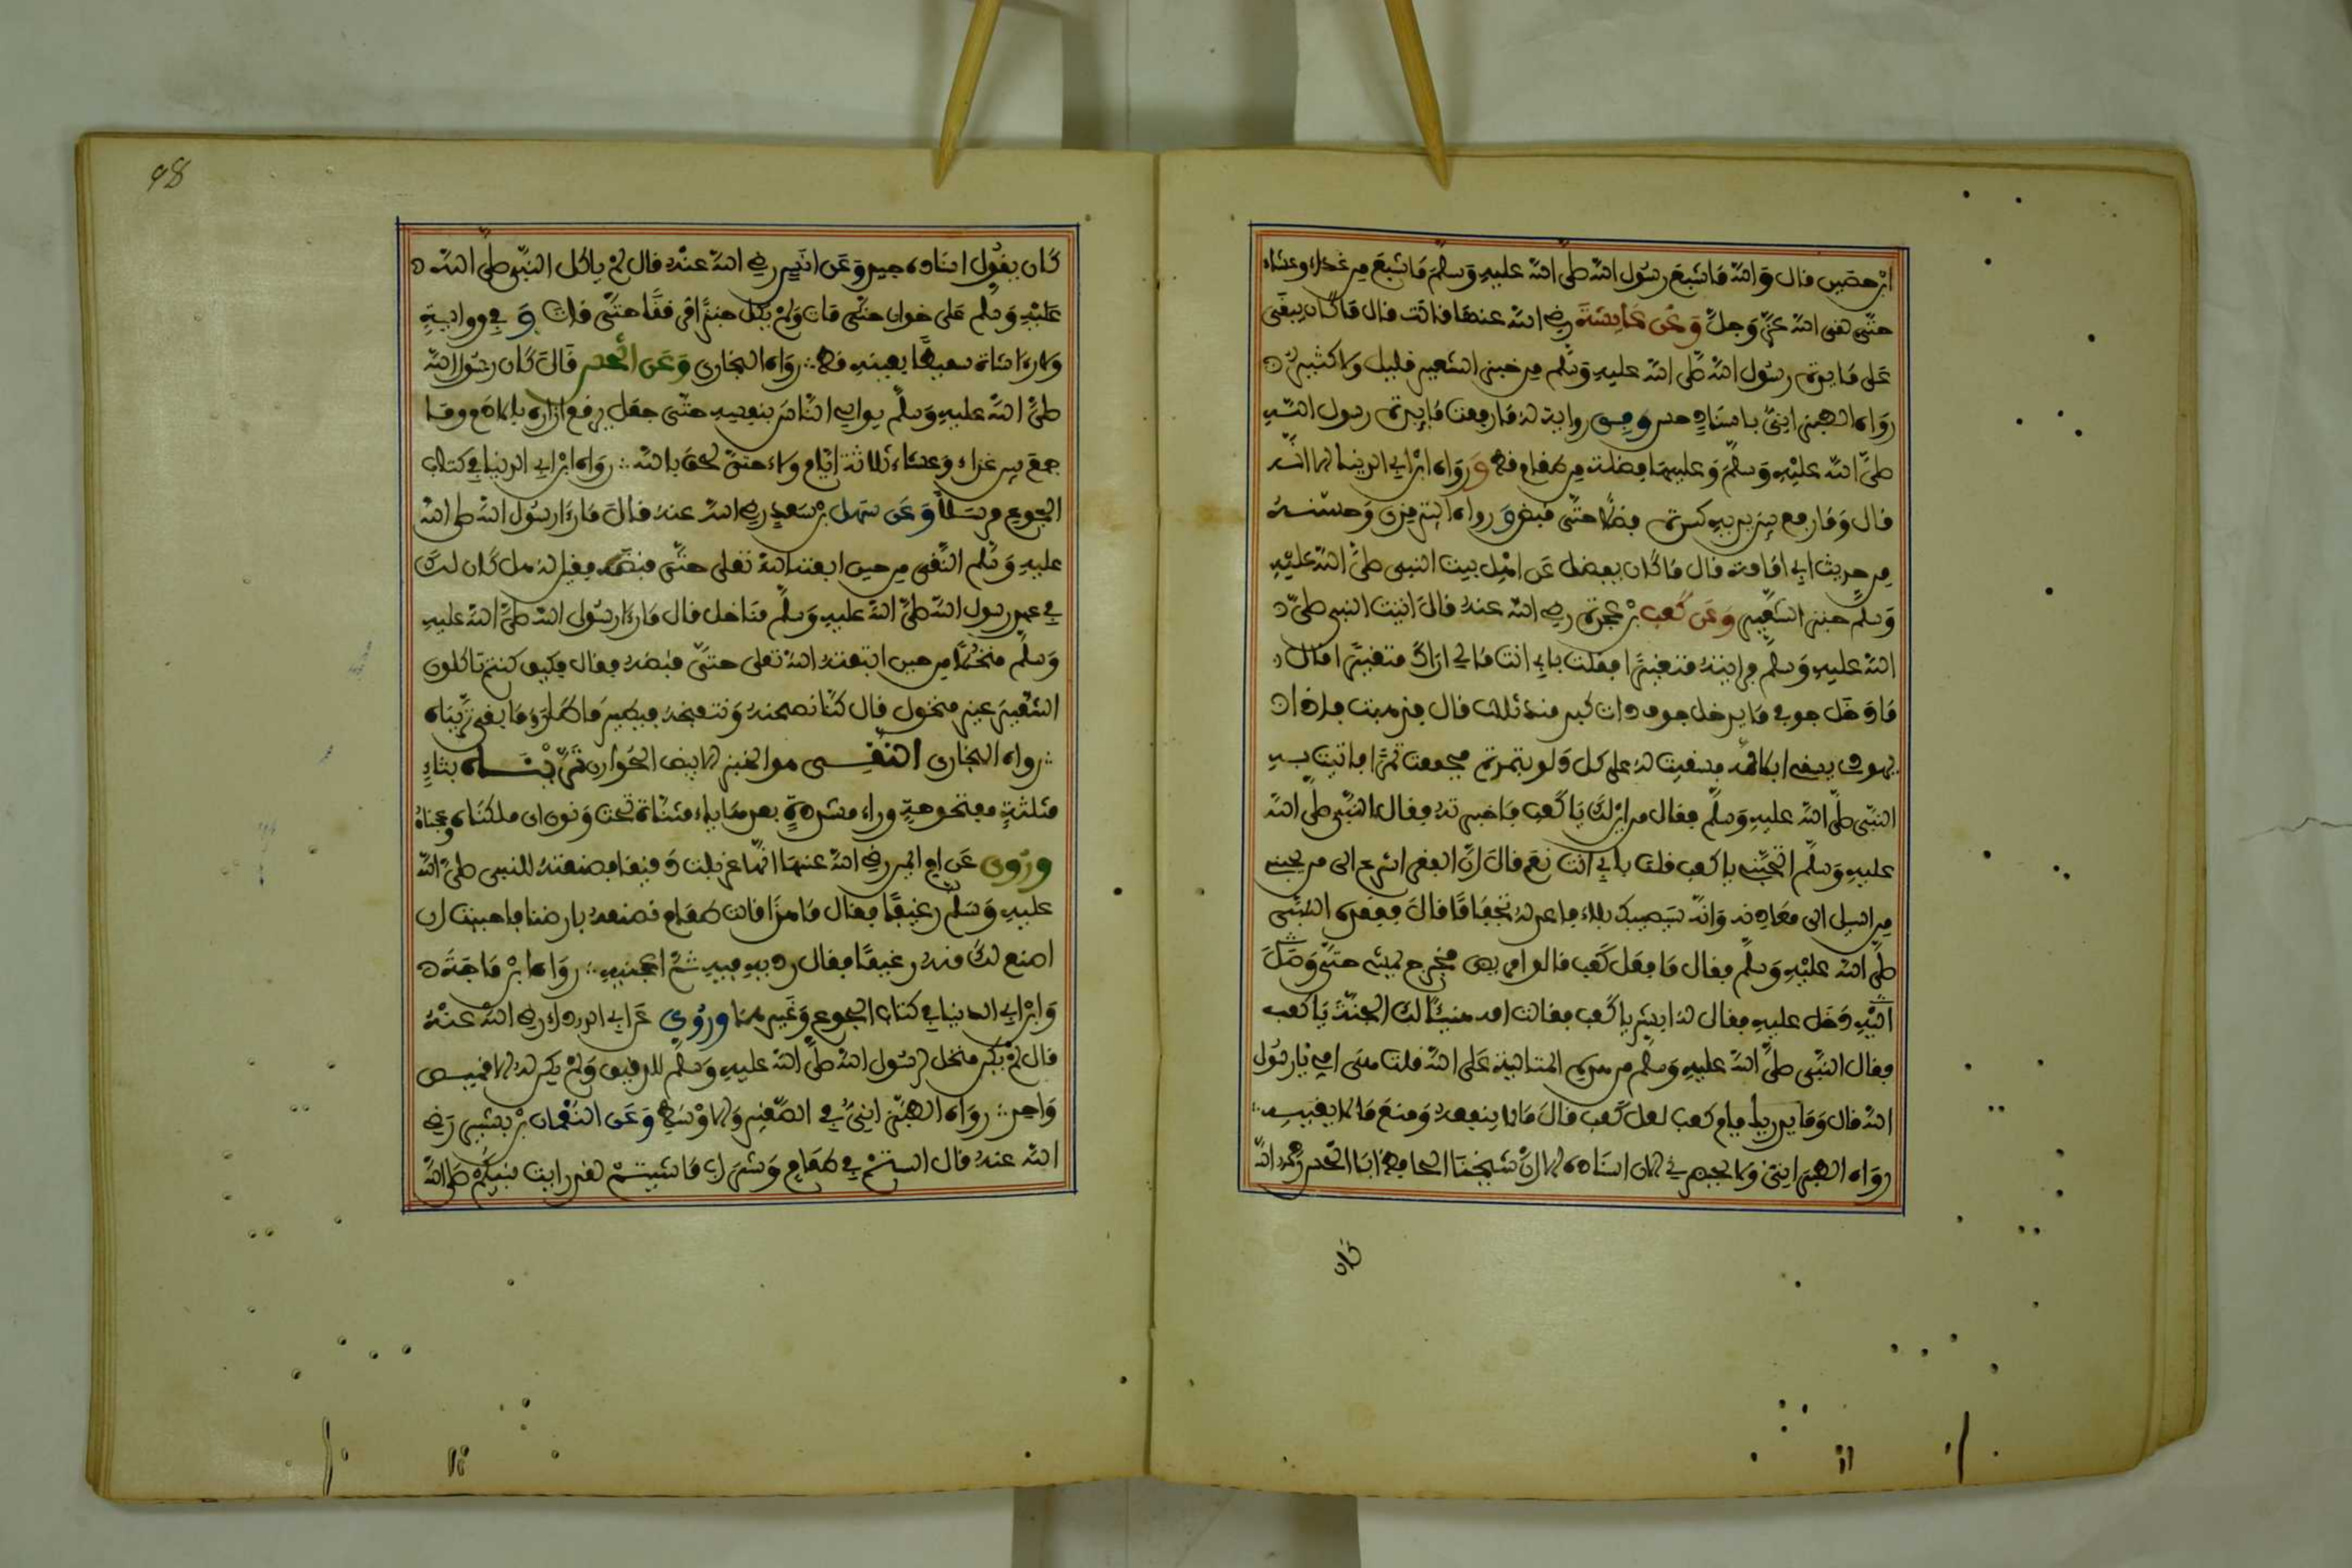 ابن حصين قال والله ما شبع رسول الله صلى الله عليه وسلم ما شبع من غداء وعشاء
حتى لقي الله عز وجل وعن عائشة رضي الله عنها قالت قال ما كان يبقى
على مائدة رسول الله صلى الله عليه وسلم من خبز الشعير قليل ولا كثير
رواه الطبراني باسناد حسن وفي رواية له ما رفعت مائدة رسول الله
صلى الله عليه وسلم وعليها فضلة من طعام قط ورواه ابن ابي الدنيا الا انه
قال وما رفع بين يديه كسرة فضلا حتى قبض ورواه الترمذي وحسنه
من حديث ابي امامة قال ما كان يفضل عن اهل بيت النبي صلى الله عليه
وسلم خبز الشعير وعن كعب بن عجرة رضي الله عنه قال اتيت النبي صلى
الله عليه وسلم فرايته متغيرا فقلت بابي انت ما لي اراك متغيرا قال
ما دخل جوفي ما يدخل جوف ذات كبد منذ ثلاث قال فذهبت فاذا
يهودي يسقي ابلا له فسقيت له على كل دلو بتمرة فجمعت تمرا فاتيت به
النبي صلى الله عليه وسلم فقال من اين لك يا كعب فاخبرته فقال النبي صلى الله
عليه وسلم اتحبني يا كعب قلت بابي انت نعم قال ان الفقر اسرع الى من يحبني
من السيل الى معادنه وانه سيصيبك بلاء فاعد له تجفافا قال ففقده النبي
صلى الله عليه وسلم فقال ما فعل كعب قالوا مريض فخرج يمشي حتى وصل
اليه دخل عليه فقال له ابشر يا كعب فقالت امه هنيئا لك الجنة يا كعب
فقال النبي صلى الله عليه وسلم من هذه المتالية على الله قلت هي امي يا رسول
الله قال وما يدريك يا ام كعب لعل كعب قال ما لا ينفعه ومنع ما لا يغنيه
رواه الطبراني ولا يحضرني الان اسناده الا ان شيخنا الحافظ ابا الحسن رحمه الله
كان
48
كان يقول اسناده جيد وعن انس رضي الله عنه قال لم ياكل النبي صلى الله
عليه وسلم على خوان حتى مات ولم ياكل خبزا مرققا حتى مات وفي رواية
ولا راى شاة سميطا بعينه قط رواه البخاري وعن الحسن قال كان رسول الله
صلى الله عليه وسلم يواسي الناس بنفسه حتى جعل يرفع ازاره بالادم وما
جمع بين غداء وعشاء ثلاثة ايام ولاء حتى لحق بالله رواه ابن ابي الدنيا في كتاب
الجوع مرسلا وعن سهل بن سعد رضي الله عنه قال ما راى رسول الله صلى الله
عليه وسلم النقي من حين ابتعثه الله تعلى حتى قبضه فقيل له هل كان لك
في عهد رسول الله صلى الله عليه وسلم مناخل قال ما راى رسول الله صلى الله عليه
وسلم منخلا من حين ابتعثه الله تعلى حتى قبضه فقال فكيف كنتم تاكلون
الشعير غير منخول قال كنا نطحنه وننفخه فيطير ما طار وما بقي ثريناه
رواه البخاري النقي هو الخبز الابيض الحواري ثريناه بثاء
مثلثة مفتوحة وراء مشددة بعدها ياء مثناة تحت ونون اي بللناه وعجناه
وروي عن ام ايمن رضي الله عنها انها غربلت دقيقا فصنعته للنبي صلى الله
عليه وسلم رغيفا فقال ما هذا قالت طعام نصنعه بارضنا فاحببت ان
اصنع لك منه رغيفا فقال رديه فيه ثم اعجنيه رواه ابن ماجة
وابن ابي الدنيا في كتاب الجوع وغيرهما وروي عن ابي الدرداء رضي الله عنه
قال لم يكن ينخل لرسول الله صلى الله عليه وسلم الدقيق ولم يكن له الا قميص
واحد رواه الطبراني في الصغير والاوسط وعن النعمان بن بشير رضي
الله عنه قال الستم في طعام وشراب ما شيتم لقد رايت نبيكم صلى الله